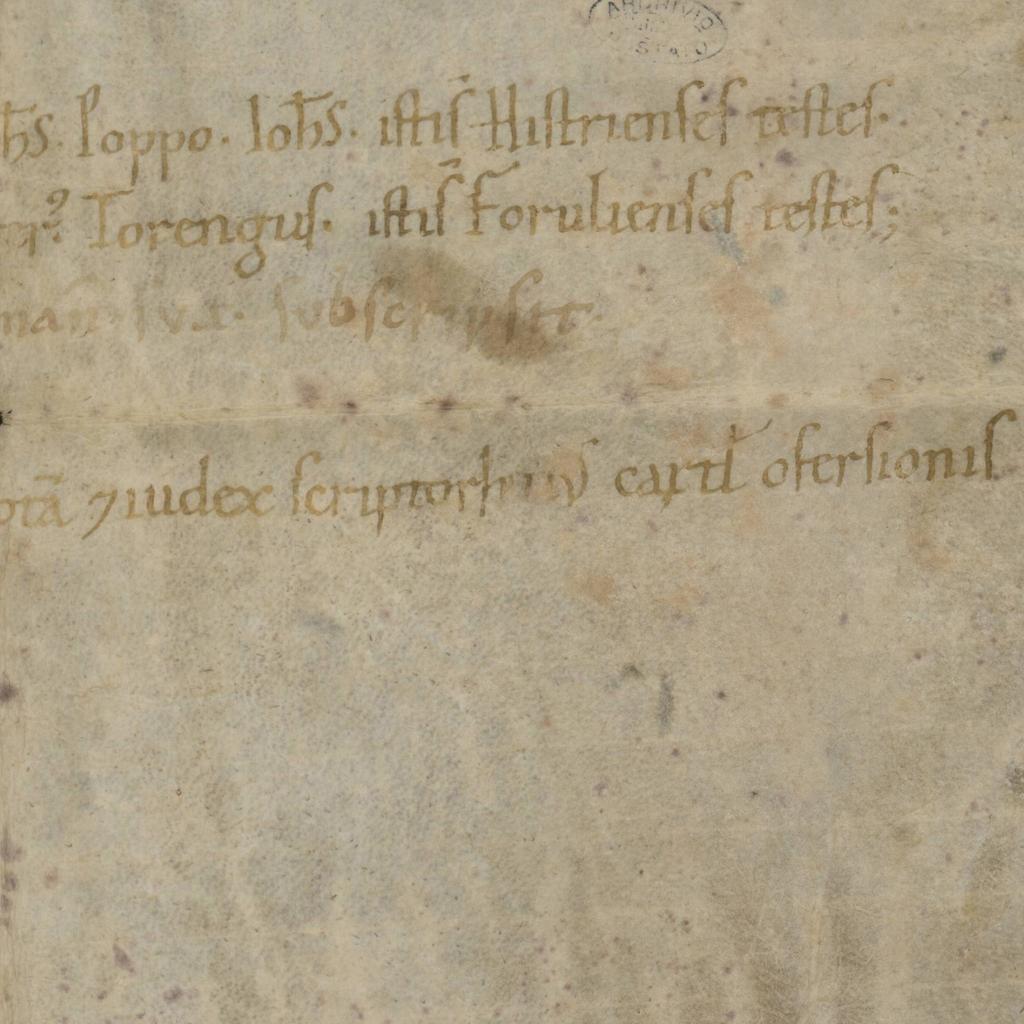 ARCHIVIO
STATO
ħs. Poppo. Ioħs. istis̄ Histrienses testes.
Torengus. istis̄ Forulienses testes;
sua. subscripsit.
iudex scriptor hui' cartł ofersionis